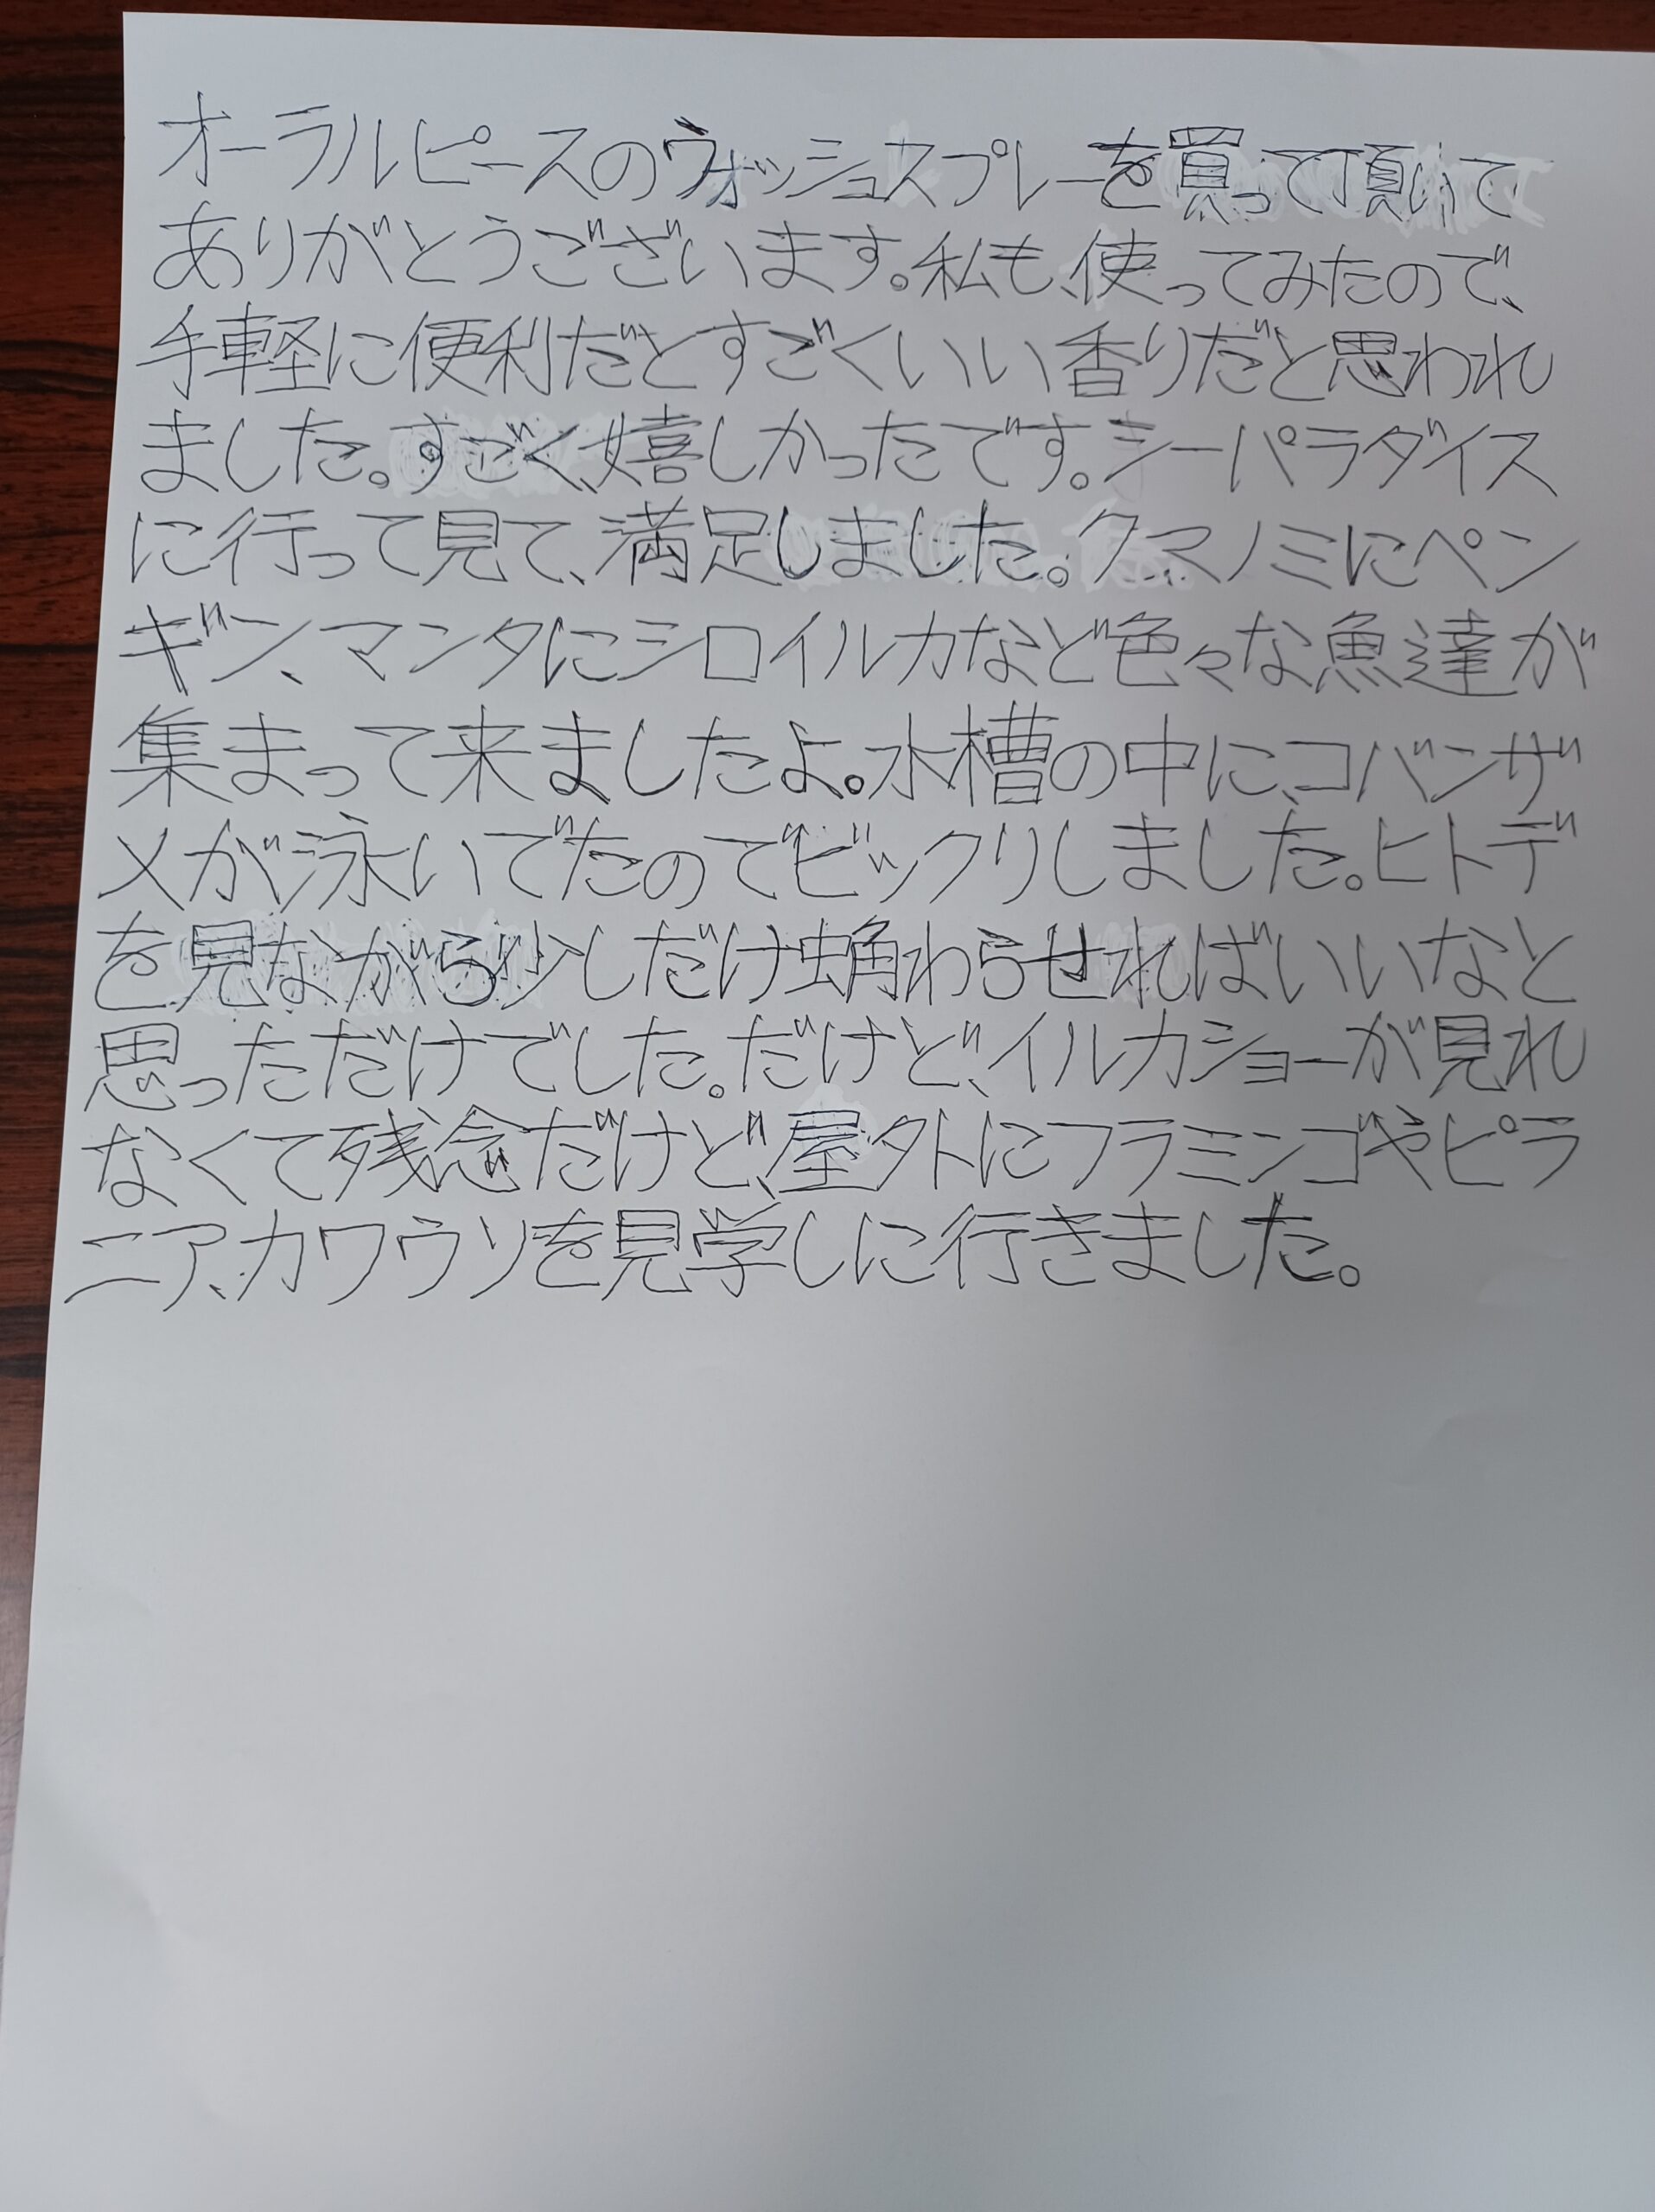 オーラルピースのウォッシュスプレーを買って頂いて
ありがとうございます。私も、使ってみたので、
手軽に便利だとすごくいい香りだと思われ
ました。すごく、嬉しかったです。シーパラダイス
に行って見て、満足しました。クマノミにペン
ギン、マンタにシロイルカなど色々な魚達が
集まって来ましたよ。水槽の中に、コバンザ
メが泳いでたのでビックリしました。ヒトデ
を見ながら少しだけ触わらせればいいなと
思っただけでした。だけど、イルカショーが見れ
なくて残念だけど、屋外にフラミンゴやピラ
ニア、カワウソを見学しに行きました。